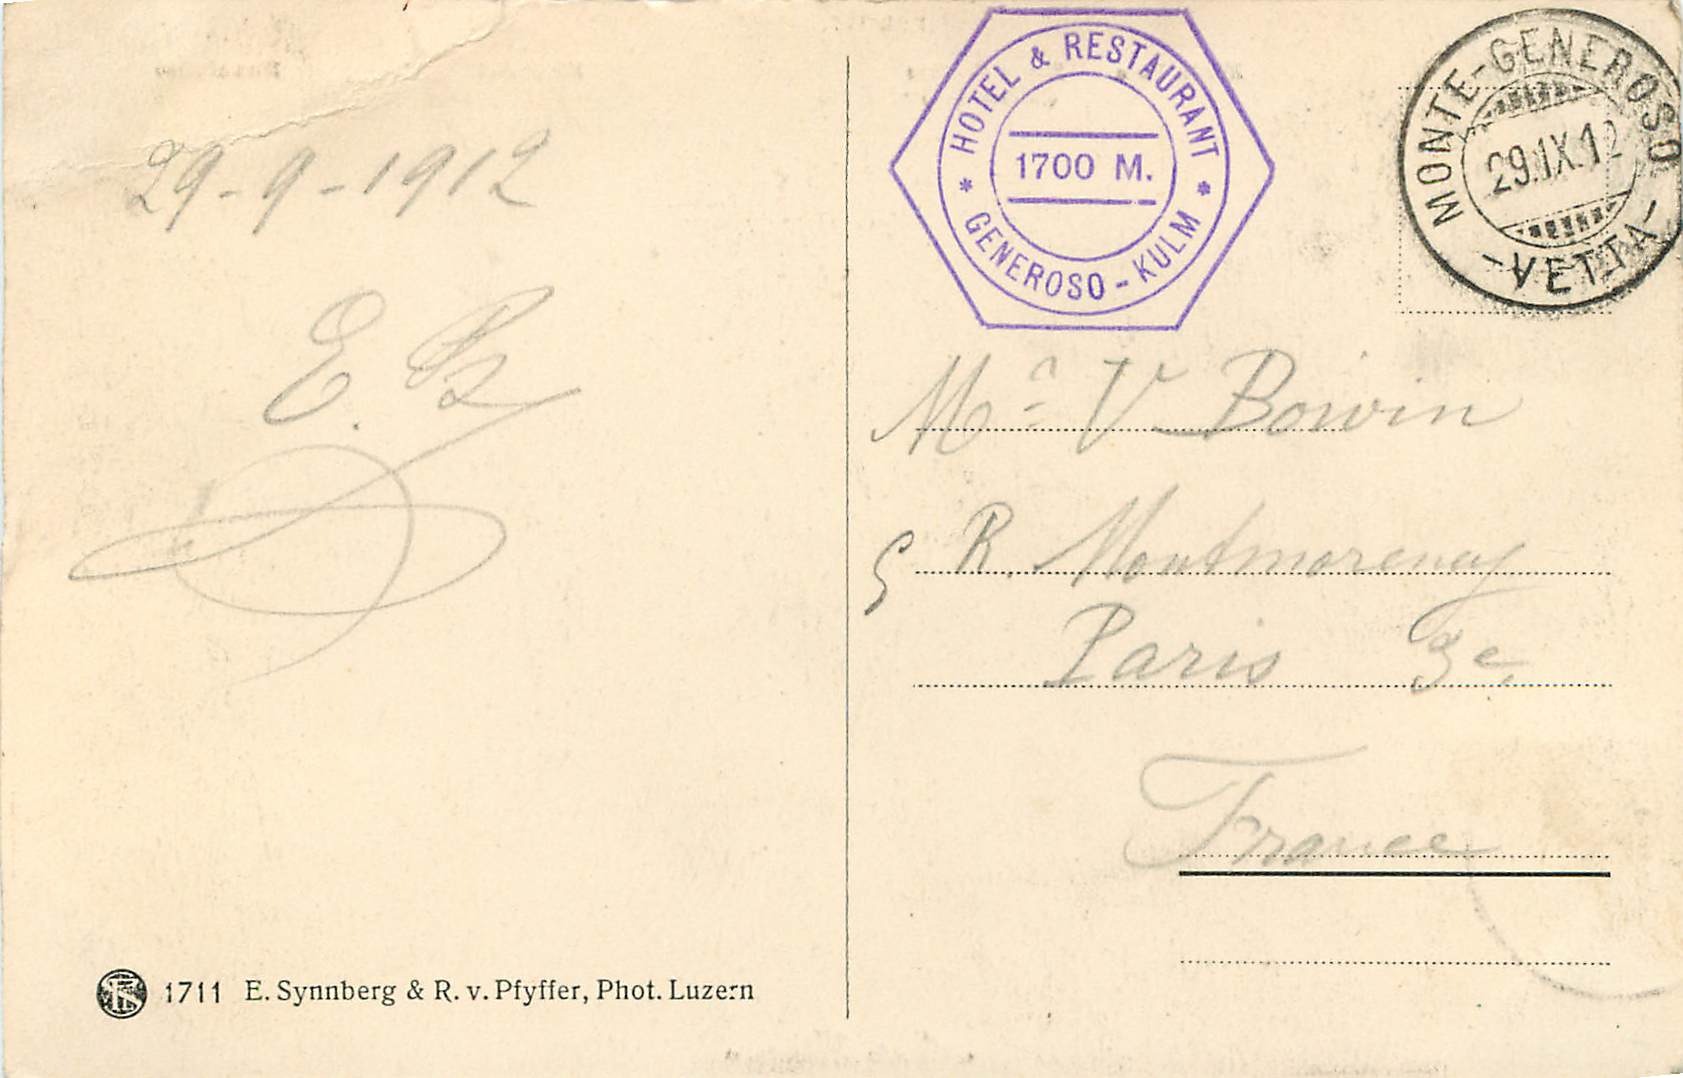 29-9-1912
E. B
HOTEL & RESTAURANT
1700 M.
* GENEROSO-KULM *
MONTE-GENEROSO
29.IX.12
-VETTA-
Mr V Boivin
5 R. Montmorency
Paris 3e
France
1711 E. Synnberg & R. v. Pfyffer, Phot. Luzern